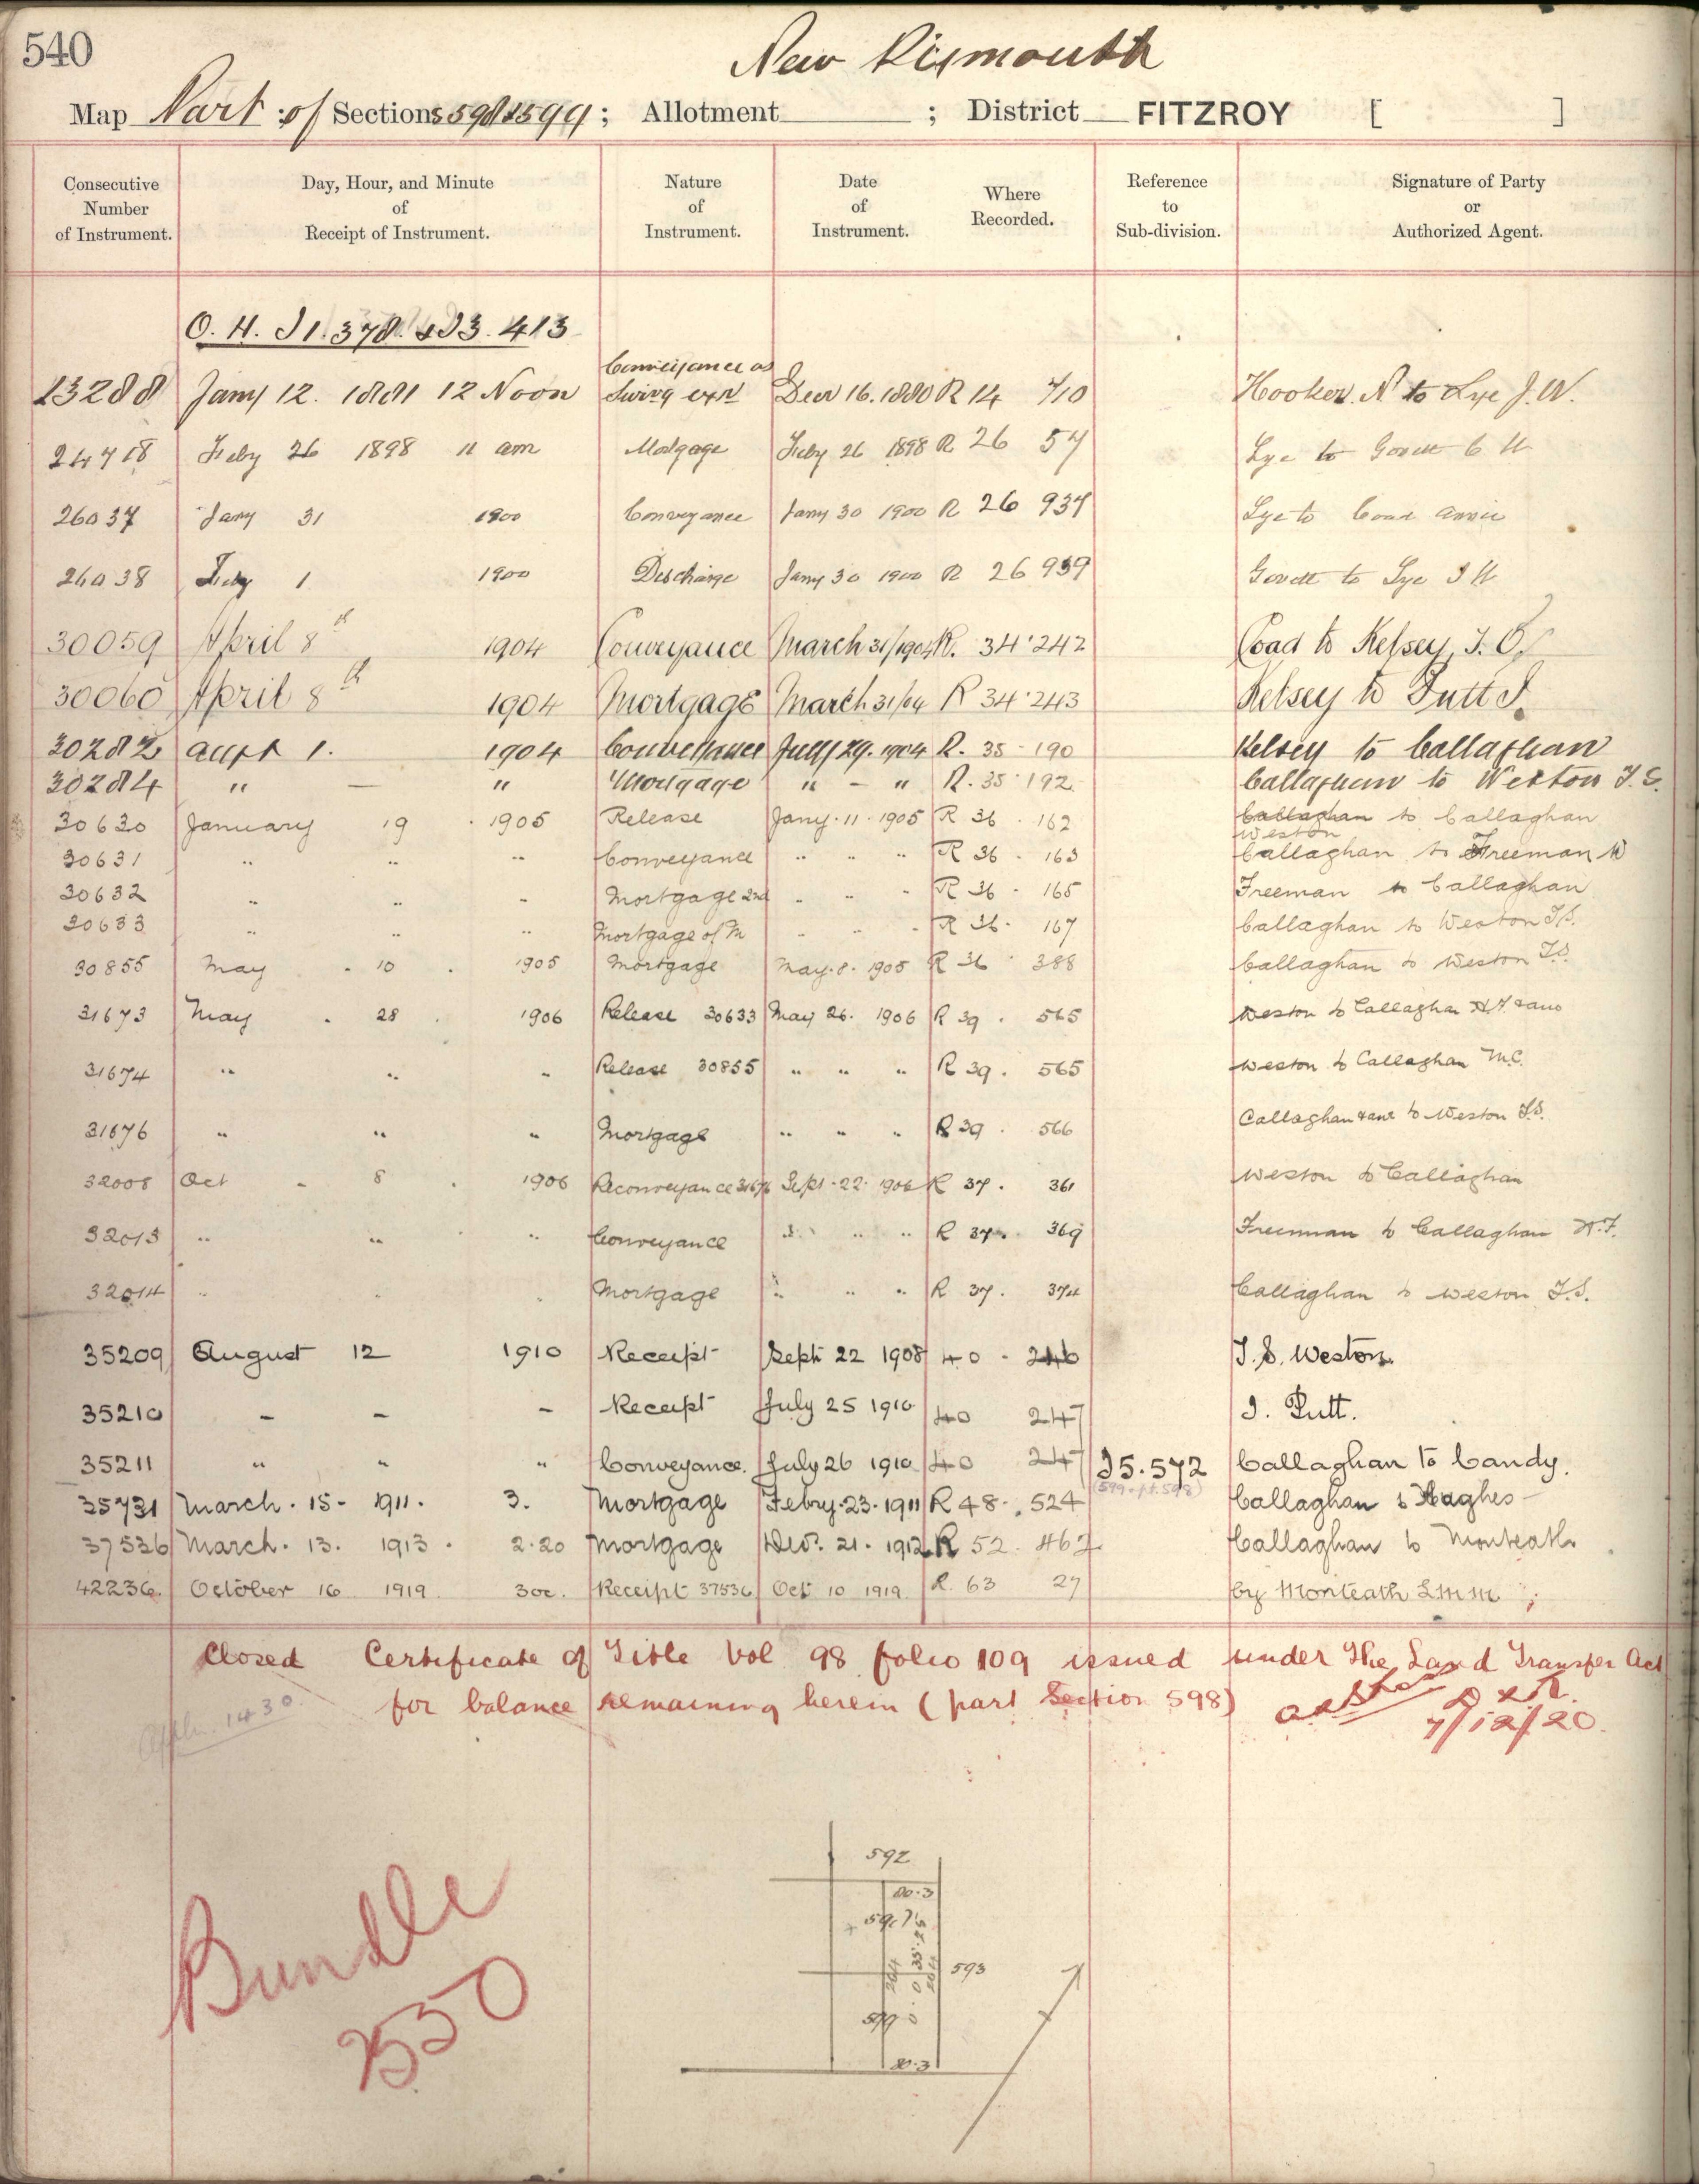 540
New Plymouth
Map Part of Sections 598 & 599 ; Allotment ; District FITZROY [ ]
Consecutive Number of Instrument.
Day, Hour, and Minute of Receipt of Instrument.
Nature of Instrument.
Date of Instrument.
Where Recorded.
Reference to Sub-division.
Signature of Party or Authorized Agent.
O. H. I 1. 378. & I 3. 413
Conveyance as
13288 Jany 12. 1881 12 Noon Decr 16. 1880 R 14 710 Hooker. N. to Lye J. W.
24718 Feby 26 1898 11 am Mortgage Feby 26 1898 R 26 57 Lye to Govett C H
26037 Jany 31 1900 Conveyance Jany 30 1900 R 26 937 Lye to Coad Annie
26038 Feby 1 1900 Discharge Jany 30 1900 R 26 939 Govett to Lye J W
30059 April 8th 1904 Conveyance March 31/1904 R. 34 · 242 Coad to Kelsey, J. O.
30060 April 8th 1904 Mortgage March 31/04 R 34 · 243 Kelsey to Tutt I.
30282 Augt 1. 1904 Conveyance July 29. 1904 R. 35 - 190 Kelsey to Callaghan
30284 " — " Mortgage " - " R. 35 · 192. Callaghan to Weston T. S.
30630 January 19 · 1905 Release Jany · 11 · 1905 R 36 · 162 Callaghan to Callaghan
Weston
30631 " " " Conveyance " " " R 36 - 163 Callaghan to Freeman W
30632 " " " Mortgage 2nd " " " R 36 - 165 Freeman to Callaghan
30633 " " " Mortgage of M " " " R 36 · 167 Callaghan to Weston T.S.
30855 May · 10 · 1905 Mortgage May · 8 · 1905 R 36 · 388 Callaghan to Weston T.S.
31673 May · 28 · 1906 Release 30633 May 26. 1906 R 39 · 565 Weston to Callaghan H.F. & ano
31674 " " " Release 30855 " " " R 39 . 565 Weston to Callaghan M.C.
31676 " " " Mortgage " " " R 39 · 566 Callaghan & anr to Weston T.S.
32008 Oct - 8 · 1906 Reconveyance 31676 Sept · 22 · 1906 R 37 . 361 Weston to Callaghan
32013 " " " Conveyance " " " R 37 . 369 Freeman to Callaghan H.F.
32014 " " " Mortgage " " " R 37 . 374 Callaghan to Weston T.S.
35209 August 12 1910 Receipt Sept 22 1908 40 - 246 T. S. Weston.
35210 - - - Receipt July 25 1910 40 247 I. Tutt.
35211 " " " Conveyance. July 26 1910 40 247 I5.572 Callaghan to Candy.
(599 & pt. 598)
35731 March · 15 - 1911 · 3. Mortgage Febry · 23 · 1911 R 48 · 524 Callaghan to Hughes
37536 March · 13. 1913 · 2·20 Mortgage Decr. 21 · 1912 R 52 · 467 Callaghan to Monteath
42236. October 16 1919. 3 oc. Receipt 37536 Oct 10 1919 R. 63 27 by Monteath L M M
Closed Certificate of Title Vol 98 folio 109 issued under The Land Transfer Act
for balance remaining herein (part Section 598)
7/12/20.
Appln. 1430.
592
80·3
593
599
80·3
Bundle